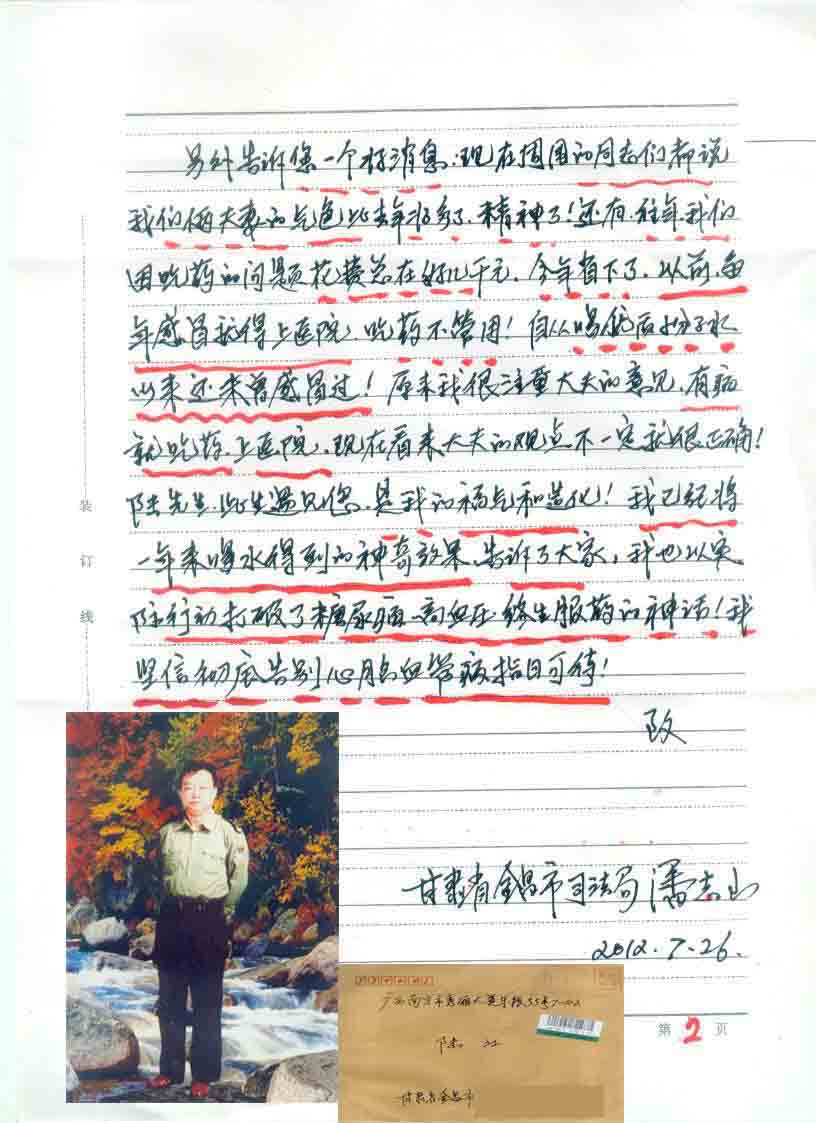 另外告诉您一个好消息.现在周围的同志们都说
我们俩夫妻的气色比去年好多了.精神了!还有.往年我们
因吃药的问题花费总在好几千元.今年省下了.以前.每
年感冒就得上医院.吃药不管用!自从喝低质分子水
以来还未曾感冒过!原来我很注重大夫的意见.有病
就吃药.上医院.现在看来大夫的观点不一定就很正确!
陆先生.此生遇见您.是我的福气和造化!我已经将
一年来喝水得到的神奇效果.告诉了大家,我也以实
际行动打破了糖尿病、高血压终生服药的神话!我
坚信彻底告别心脑血管病指日可待!
致
甘肃省金昌市司法局潘志山
2012.7.26.
装
订
线
广西南宁市
陆江
甘肃省金昌市
第2页